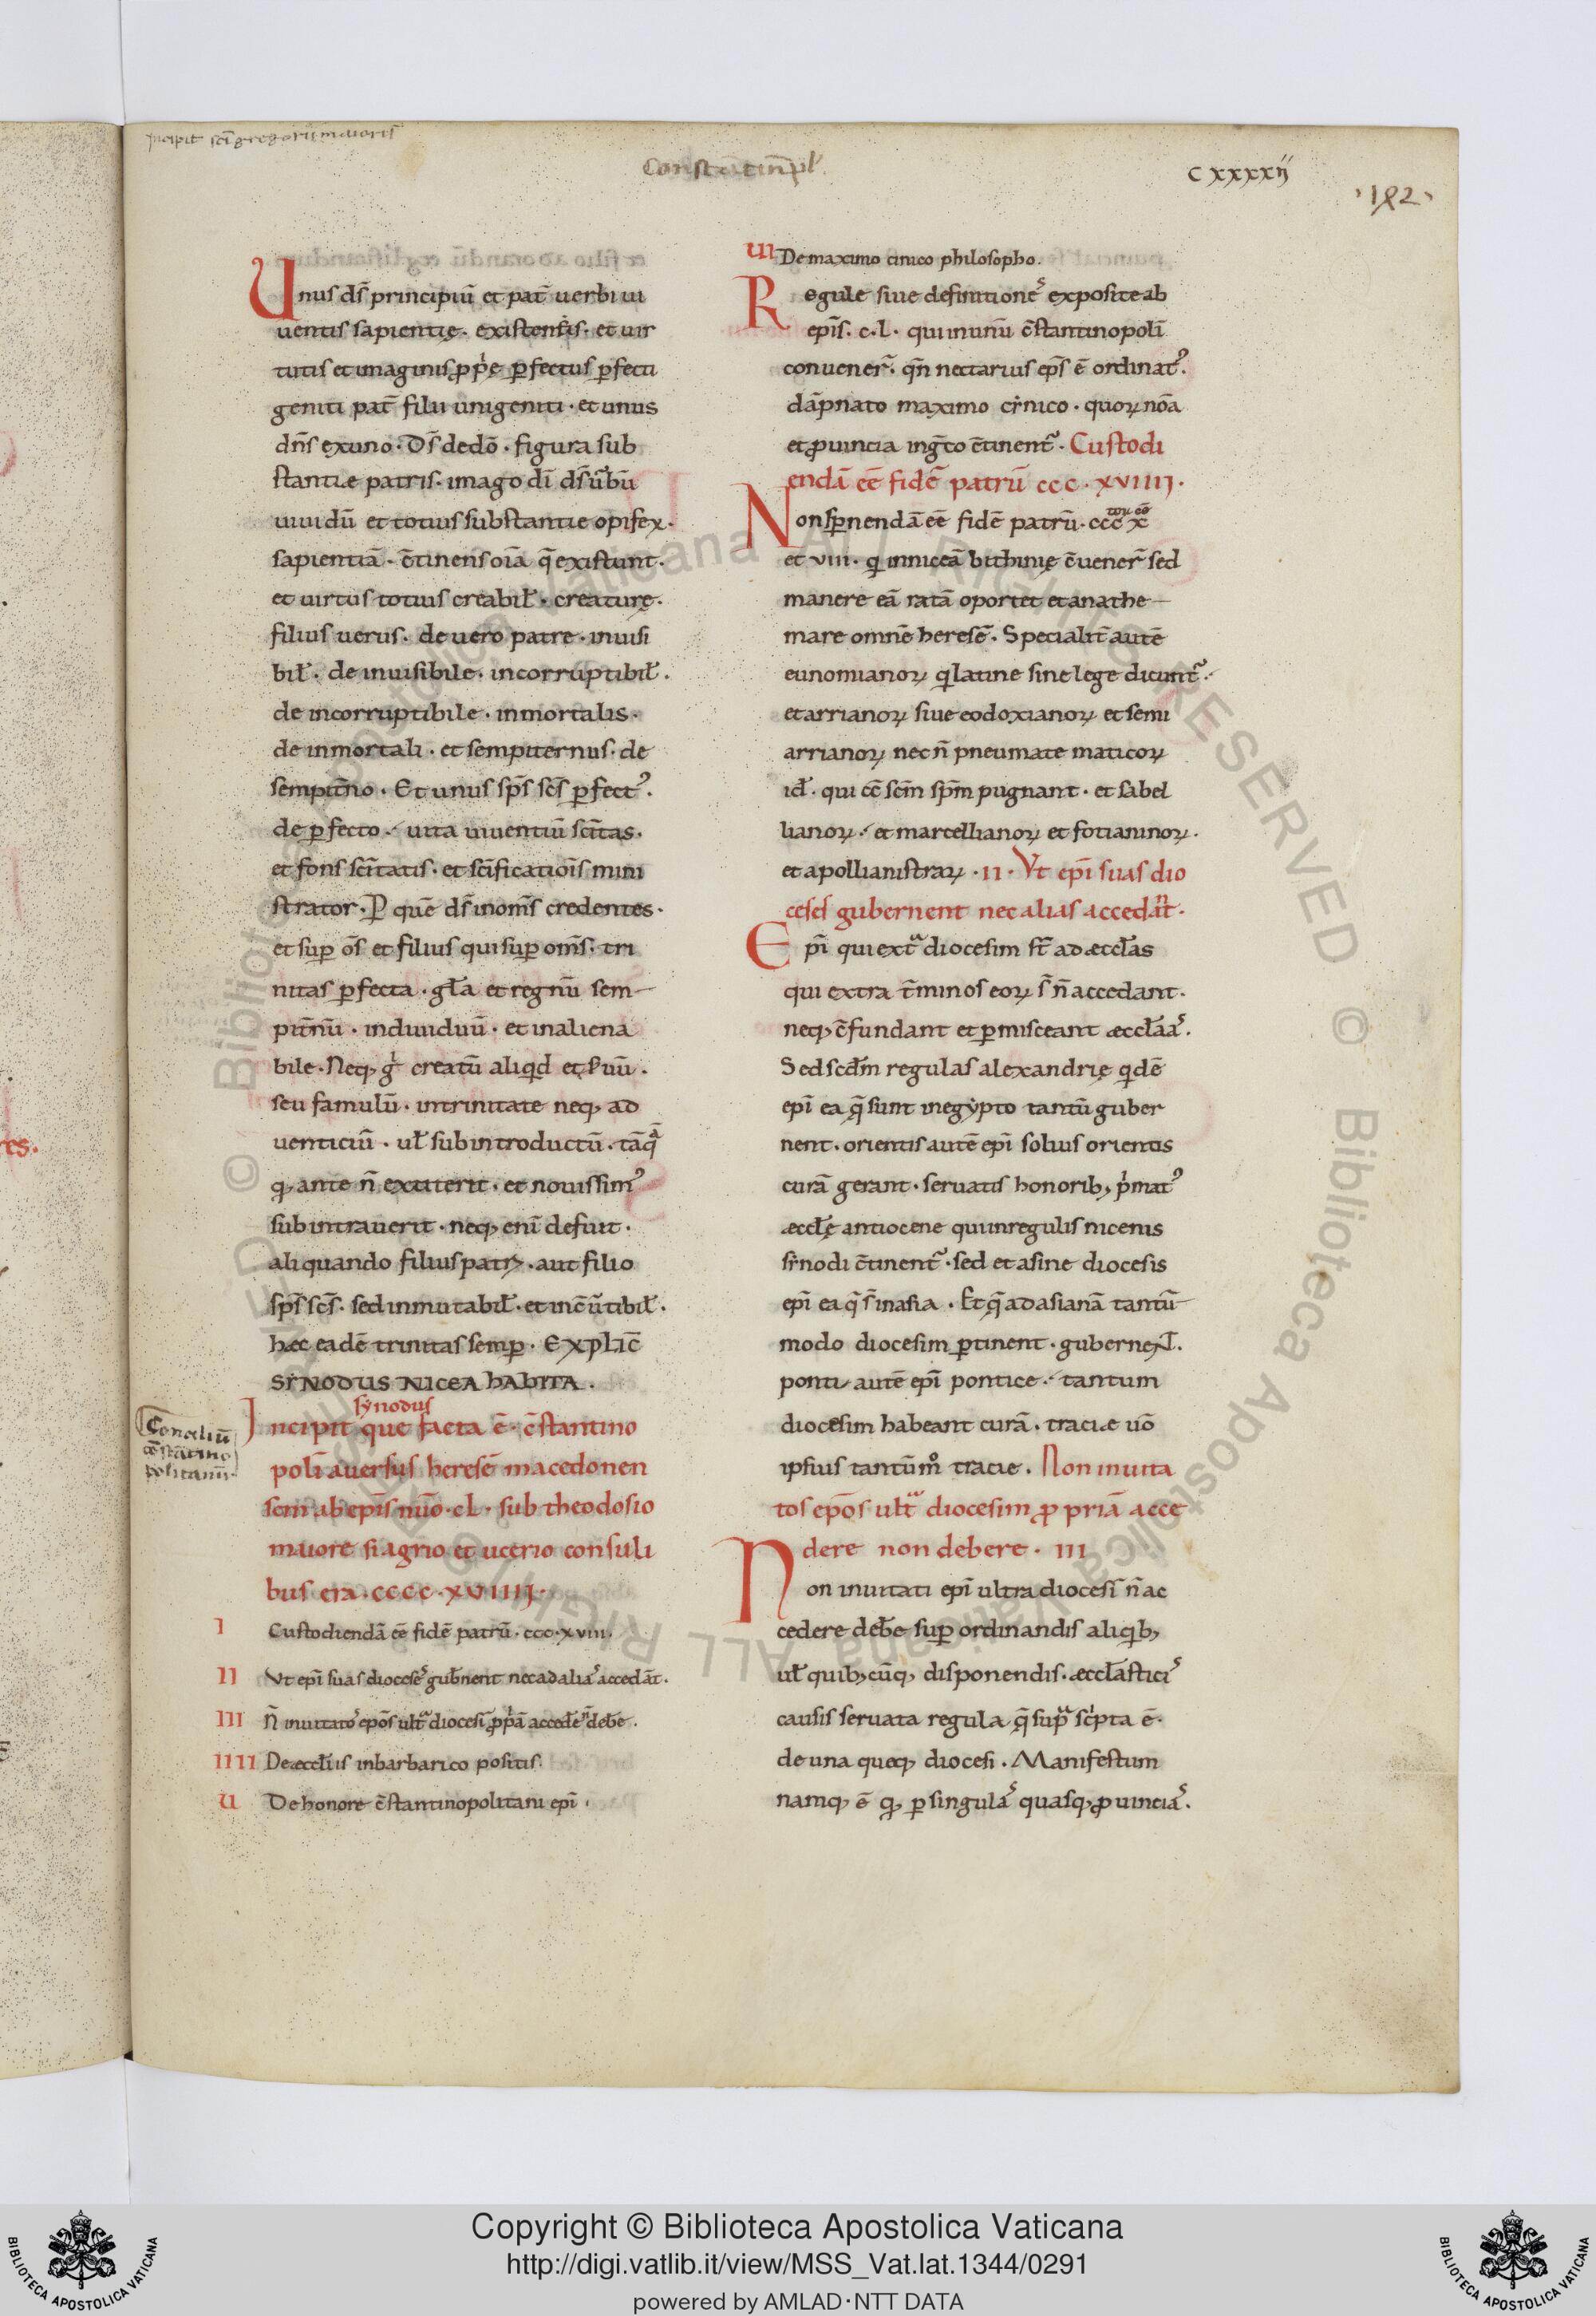 Incipit sc̄i gregorii maioris
Constātin̄pl'.
CXXXXII
·142·
Unus ds̄ principiū et pat̄ uerbi ui
uentis sapientię. existentis. et uir
tutis et imaginis ꝓp̍ę ꝑfectus ꝑfecti
geniti pat̄ filii unigeniti · et unus
dn̄s ex uno · Ds̄ de dō · figura sub
stantiæ patris · imago dī ds̄ ūbū
uiuidū et totius substantie opifex ·
sapientiā · c̄tinens oīa q̄ existunt ·
et uirtus totius creabil̄ · creaturę ·
filius uerus · de uero patre · inuisi
bil̄ · de inuisibile · incorruptibil̄ ·
de incorruptibile · inmortalis ·
de inmortali · et sempiternus · de
sempit̄no · Et unus sp̄s sc̄s ꝑfect᾽ ·
de ꝑfecto · uita uiuentiū sc̄itas ·
et fons sc̄itatis · et sc̄ificatiōis mini
strator · P quē ds̄ in om̄s credentes ·
et suꝑ ōs et filius qui suꝑ om̄s · tri
nitas ꝑfecta · gl̄a et regnū sem
pit̄nū · indiuiduū · et inaliena
bile · Neq; g̍ creatū aliqid et s̄uū ·
seu famulū · in trinitate neq; ad
uenticiū · ul̄ subintroductū · tāqā
q; ante n̄ extiterit · et nouissim᾽
subintrauerit · neq; enī defuit ·
aliquando filius patri · aut filio
sp̄s sc̄s · sed inmutabil̄ · et inc̄ūtibil̄ ·
hæc eadē trinitas semꝑ · Explic̄
SYNODUS NICEA HABITA ·
synodus
Incipit que facta ē · c̄stantino
polī aversus heresē macedonen
sem ab ep̄is nūo · cl · sub theodosio
maiore siagrio et ucerio consuli
bus era · cccc · xviiij ·
Conciliū
cōstātino
politanū ·
I Custodiendā eē fidē patrū · ccc · xviii ·
II Vt epī suas diocese᾽ gub̄nent nec ad alia᾽ accedāt ·
III N̄ inuitato᾽ epōs ult̄ᵃ diocesī ꝓp̍ā accede n̄ deb̄e ·
IIII De æccl̄iis in barbarico positis ·
U De honore c̄stantinopolitani epī ·
UI De maximo cinico philosopho ·
Regule siue definitione᾽ exposite ab
ep̄is · c · l · qui in unū c̄stantinopolī
conuener̄ · qn̄ nectarius ep̄s ē ordinat᾽ ·
dāpnato maximo cẏnico · quoꝝ nōa
et ꝓuincia ing̍to c̄tinent᾽ · Custodi
endā eē fidē patrū ccc · xviiij ·
Non sꝑnendā eē fidē patrū · ccc x
et viii · q̍ in niceā bithinię c̄uener̄ sed
manere eā ratā oportet et anathe
mare omnē heresē · Specialit̄ autē
eunomianoꝝ q̍ latine sine lege dicunt᾽ ·
et arrianoꝝ siue eodoxianoꝝ et semi
arrianoꝝ nec n̄ pneumate maticoꝝ
id̄ · qui cc̄ sc̄m sp̄m pugnant · et sabel
lianoꝝ · et marcellianoꝝ et fotianinoꝝ ·
et apollianistraꝝ · II · Vt epī suas dio
ceses gubernent nec alias accedāt ·
Epī qui ext̄ᵃ diocesim st̄ ad æccl̄as
qui extra t̄minos eoꝝ s̄ n̄ accedant ·
neq; c̄fundant et ꝑmisceant æccl̄aa᾽ ·
Sed scd̄m regulas alexandrię q̍dē
epī ea q̄ sunt in egẏpto tantū guber
nent · orientis autē epī solius orientis
curā gerant · seruatis honorib; p̍mat᾽
æccl̄ę antiocene qui in regulis nicenis
sẏnodi c̄tinent᾽ · sed et asine diocesis
epī ea q̄ s̄ in asia · Et q̄ ad asianā tantū
modo diocesim ꝑtinent · gubernent ·
ponti autē epī pontice · tantum
diocesim habeant curā · traciæ uō
ipsius tantūmº tracie · Non inuita
tos epōs ult̄ᵃ diocesim ꝓpriā acce
dere non debere · III
Non inuitati epī ultra diocesī n̄ ac
cedere deb̄e suꝑ ordinandis aliq̍b;
ul̄ quib; cūq; disponendis · æccl̄astici᾽
causis seruata regula q̄ sup̄ᵃ sc̍pta ē ·
de una queq; diocesi · Manifestum
namq; ē q; ꝑ singula᾽ quasq; ꝓuincia᾽ ·
Copyright © Biblioteca Apostolica Vaticana
http://digi.vatlib.it/view/MSS_Vat.lat.1344/0291
powered by AMLAD·NTT DATA
© Biblioteca Apostolica Vaticana ALL RIGHTS RESERVED
© Biblioteca Apostolica Vaticana ALL RIGHTS RESERVED
BIBLIOTECA APOSTOLICA VATICANA
BIBLIOTECA APOSTOLICA VATICANA